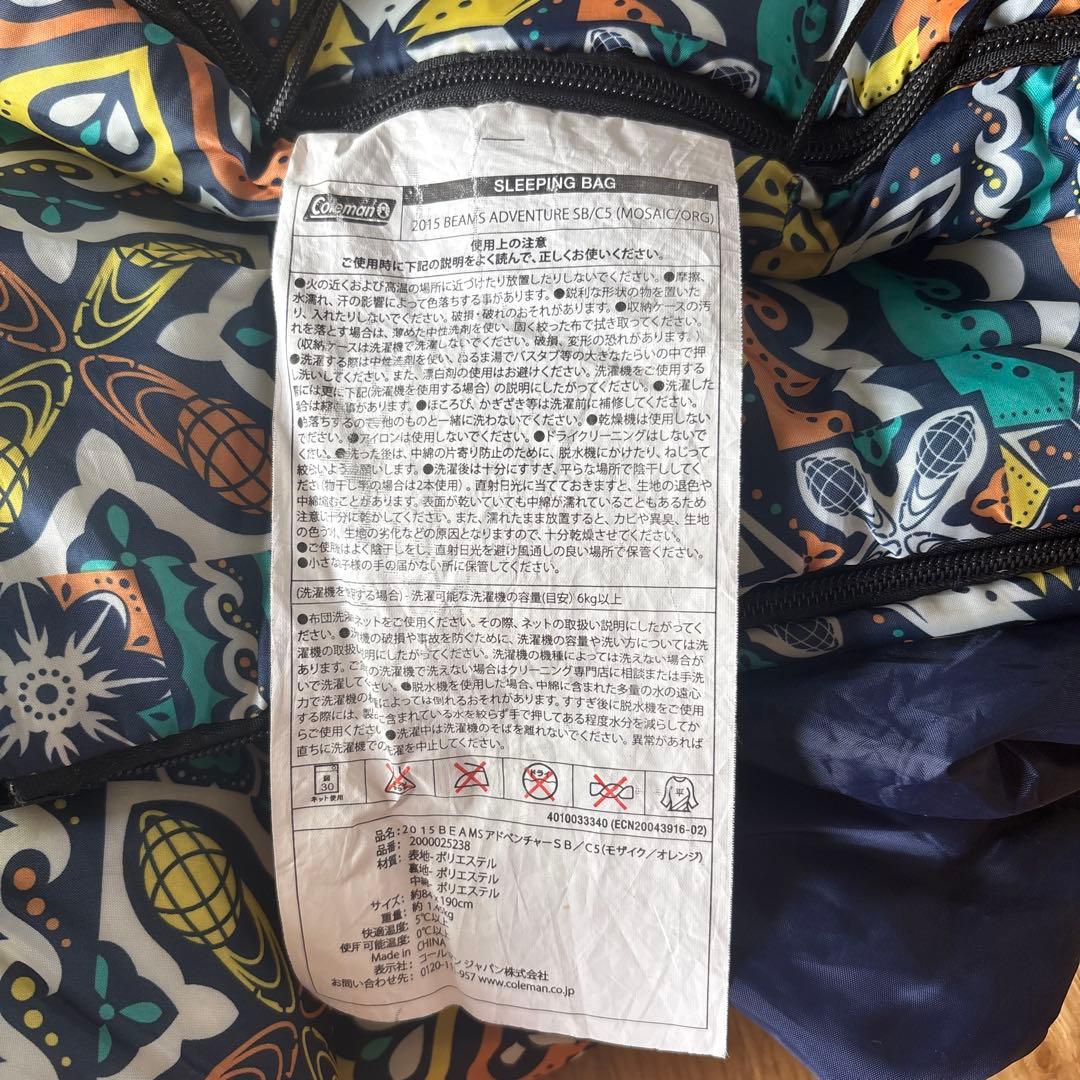 SLEEPING BAG
Coleman
2015 BEAMS ADVENTURE SB/C5 (MOSAIC/ORG)
使用上の注意
ご使用時に下記の説明をよく読んで、正しくお使いください。
●火の近くおよび高温の場所に近づけたり放置したりしないでください。●摩擦、
水濡れ、汗の影響によって色落ちする事があります。●鋭利な形状の物を置いた
り、入れたりしないでください。破損・破れのおそれがあります。●収納ケースの汚
れを落とす場合は、薄めた中性洗剤を使い、固く絞った布で拭き取ってください。
(収納ケースは洗濯機で洗濯しないでください。破損、変形の恐れがあります。)
●洗濯する際は中性洗剤を使い、ぬるま湯でバスタブ等の大きなたらいの中で押
し洗いしてください。また、漂白剤の使用はお避けください。洗濯機をご使用する
には更に下記(洗濯機を使用する場合)の説明にしたがってください。●洗濯した
合は縮 事があります。●ほころび、かぎざき等は洗濯前に補修してください。
落ちするので他のものと一緒に洗わないでください。●乾燥機は使用しない
でださい。●アイロンは使用しないでください。●ドライクリーニングはしないで
くだい。●洗った後は、中綿の片寄り防止のために、脱水機にかけたり、ねじって
絞らいよう 願いします。●洗濯後は十分にすすぎ、平らな場所で陰干ししてく
ださ(物干し竿の場合は2本使用)。直射日光に当てておきますと、生地の退色や
中綿 むことがあります。表面が乾いていても中綿が濡れていることもあるため
注意 十分に乾かしてください。また、濡れたまま放置すると、カビや異臭、生地
の色 、生地の劣化などの原因となりますので、十分乾燥させてください。
●ご使 はよく陰干しをし、直射日光を避け風通しの良い場所で保管ください。
●小さ 子様の手の届かない所に保管してください。
(洗濯機を する場合) - 洗濯可能な洗濯機の容量(目安) 6kg以上
●布団洗 ネットをご使用ください。その際、ネットの取扱い説明にしたがってく
ださい。● 機の破損や事故を防ぐために、洗濯機の容量や洗い方については洗
濯機の取扱 明にしたがってください。洗濯機の機種によっては洗えない場合が
あります。ご の洗濯機で洗えない場合はクリーニング専門店に相談または手洗
いで洗濯してください。●脱水機を使用した場合、中綿に含まれた多量の水の遠心
力で洗濯機の によっては倒れるおそれがあります。すすぎ後に脱水機をご使用
する際には、製 に含まれている水を絞らず手で押してある程度水分を減らしてか
らご使用くださ ●洗濯中は洗濯機のそばを離れないでください。異常があれば
直ちに洗濯機での 濯を中止してください。
弱
30
ネット使用
ドライ
平
4010033340 (ECN20043916-02)
品名:2015BEAMSアドベンチャーSB/C5(モザイク/オレンジ)
品番: 2000025238
材質: 表地- ポリエステル
裏地- ポリエステル
中 - ポリエステル
サイズ: 約84 x190cm
重量: 約 kg
快適温度: 5℃以
使用可能温度: 0℃以
Made in CHINA
表示社: コール ン ジャパン株式会社
お問い合わせ先: 0120-11 957 www.coleman.co.jp